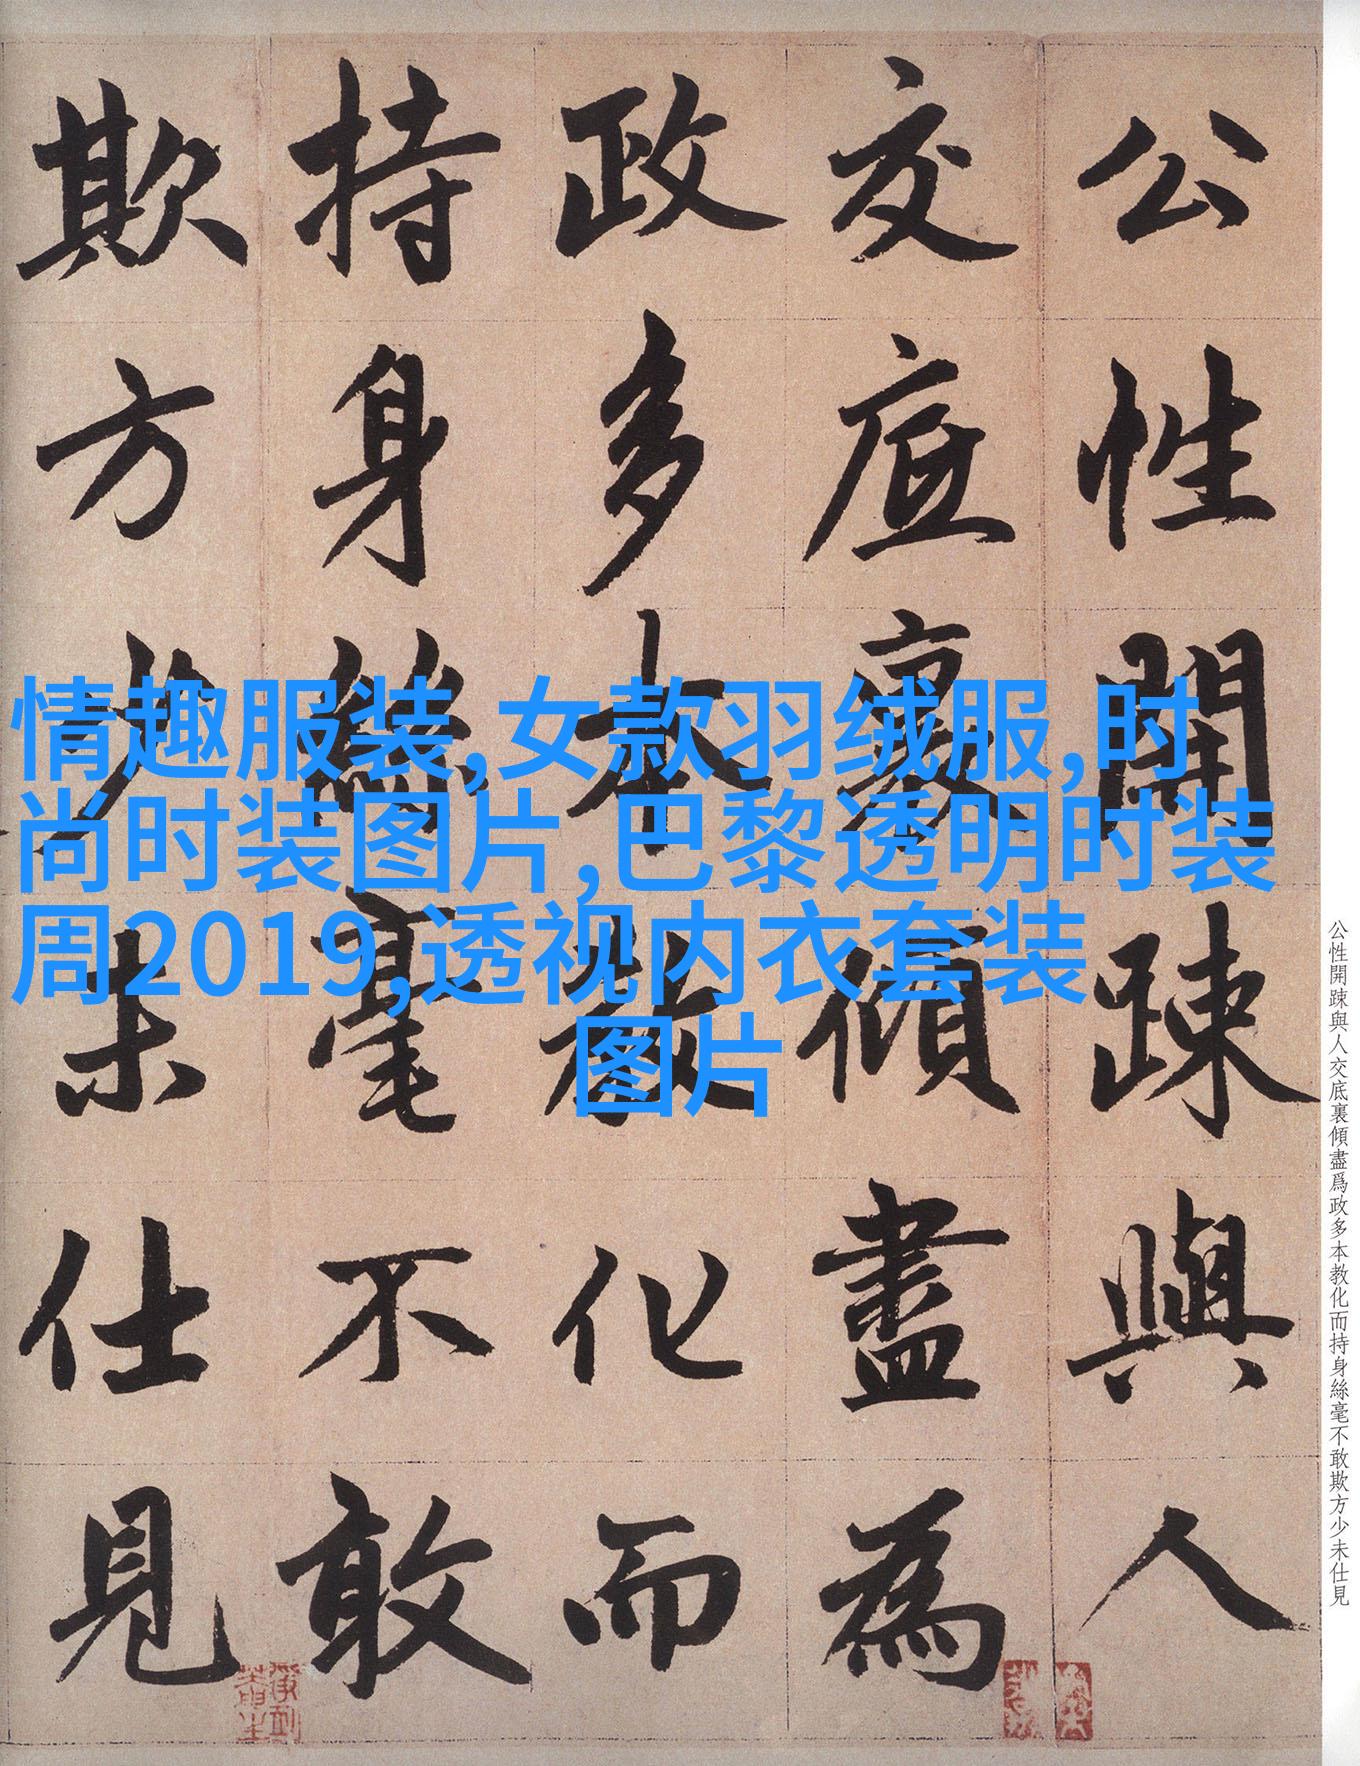 公性開踈與人
交底裏傾盡為
政多本教化而
持身絲毫不敢
欺方少未仕見
公性開踈與人交底裏傾盡爲政多本教化而持身絲毫不敢欺方少未仕見
情趣服装,女款羽绒服,时
尚时装图片,巴黎透明时装
周2019,透视内衣套装
图片